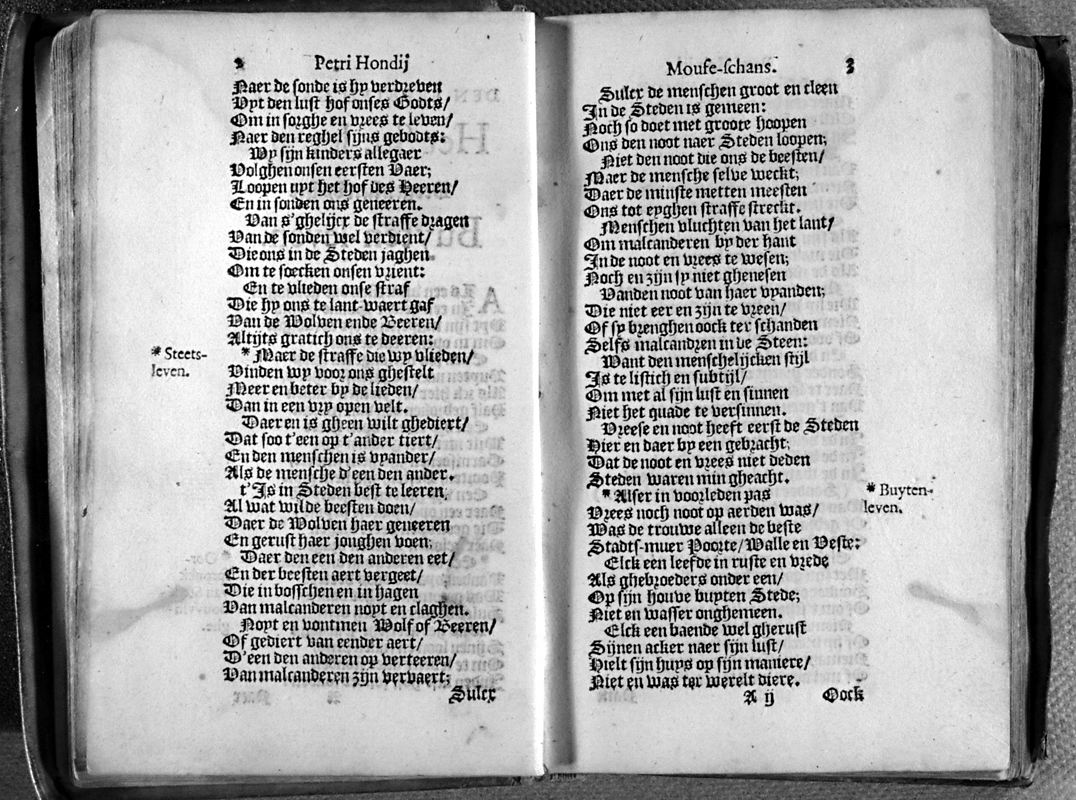 2 Petri Hondij
Naer de sonde is hy verdreven
Uyt den lust hof onses Godts/
Om in sorghe en vrees te leven/
Naer den reghel sijns gebodts:
Wy sijn kinders allegaer
Volghen onsen eersten Vaer;
Loopen uyt het hof des Heeren/
En in sonden ons geneeren.
Van s'ghelijcx de straffe dragen
Van de sonden wel verdient/
Die ons in de Steden jaghen
Om te soecken onsen vrient:
En te vlieden onse straf
Die hy ons te lant-waert gaf
Van de Wolven ende Beeren/
Altijts gratich ons te deeren:
* Maer de straffe die wy vlieden/
* Steets-
leven.
Vinden wy voor ons ghestelt
Meer en beter by de lieden/
Dan in een vry open velt.
Daer en is gheen wilt ghediert/
Dat soo t'een op t'ander tiert/
En den menschen is vyander/
Als de mensche d'een den ander.
t'Is in Steden best te leeren,
Al wat wilde beesten doen/
Daer de Wolven haer geneeren
En gerust haer jonghen voen;
Daer den een den anderen eet/
En der beesten aert vergeet/
Die in bosschen en in hagen
Van malcanderen noyt en claghen.
Noyt en vontmen Wolf of Beeren/
Of gediert van eender aert/
D'een den anderen op verteeren/
Van malcanderen zijn vervaert;
Sulcx
Mouse-schans. 3
Sulcx de menschen groot en cleen
In de Steden is gemeen:
Noch so doet met groote hoopen
Ons den noot naer Steden loopen;
Niet den noot die ons de beesten/
Maer de mensche selve weckt;
Daer de minste metten meesten
Ons tot eyghen straffe streckt.
Menschen vluchten van het lant/
Om malcanderen by der hant
In de noot en vrees te wesen;
Noch en zijn sy niet ghenesen
Vanden noot van haer vyanden;
Die niet eer en zijn te vreen/
Of sy brenghen oock ter schanden
Selfs malcandren in de Steen:
Want den menschelijcken stijl
Is te listich en subtijl/
Om met al sijn lust en sinnen
Niet het quade te versinnen.
Vreese en noot heeft eerst de Steden
Hier en daer by een gebracht;
Dat de noot en vrees niet deden
Steden waren min gheacht.
* Alser in voorleden pas
* Buyten-
leven.
Vrees noch noot op aerden was/
Was de trouwe alleen de beste
Stadts-muer Poorte/Walle en Veste:
Elck een leefde in ruste en vrede
Als ghebroeders onder een/
Op sijn houve buyten Stede;
Niet en wasser onghemeen.
Elck een baende wel gherust
Sijnen acker naer sijn lust/
Hielt sijn huys op sijn maniere/
Niet en was ter werelt diere.
A ij Oock